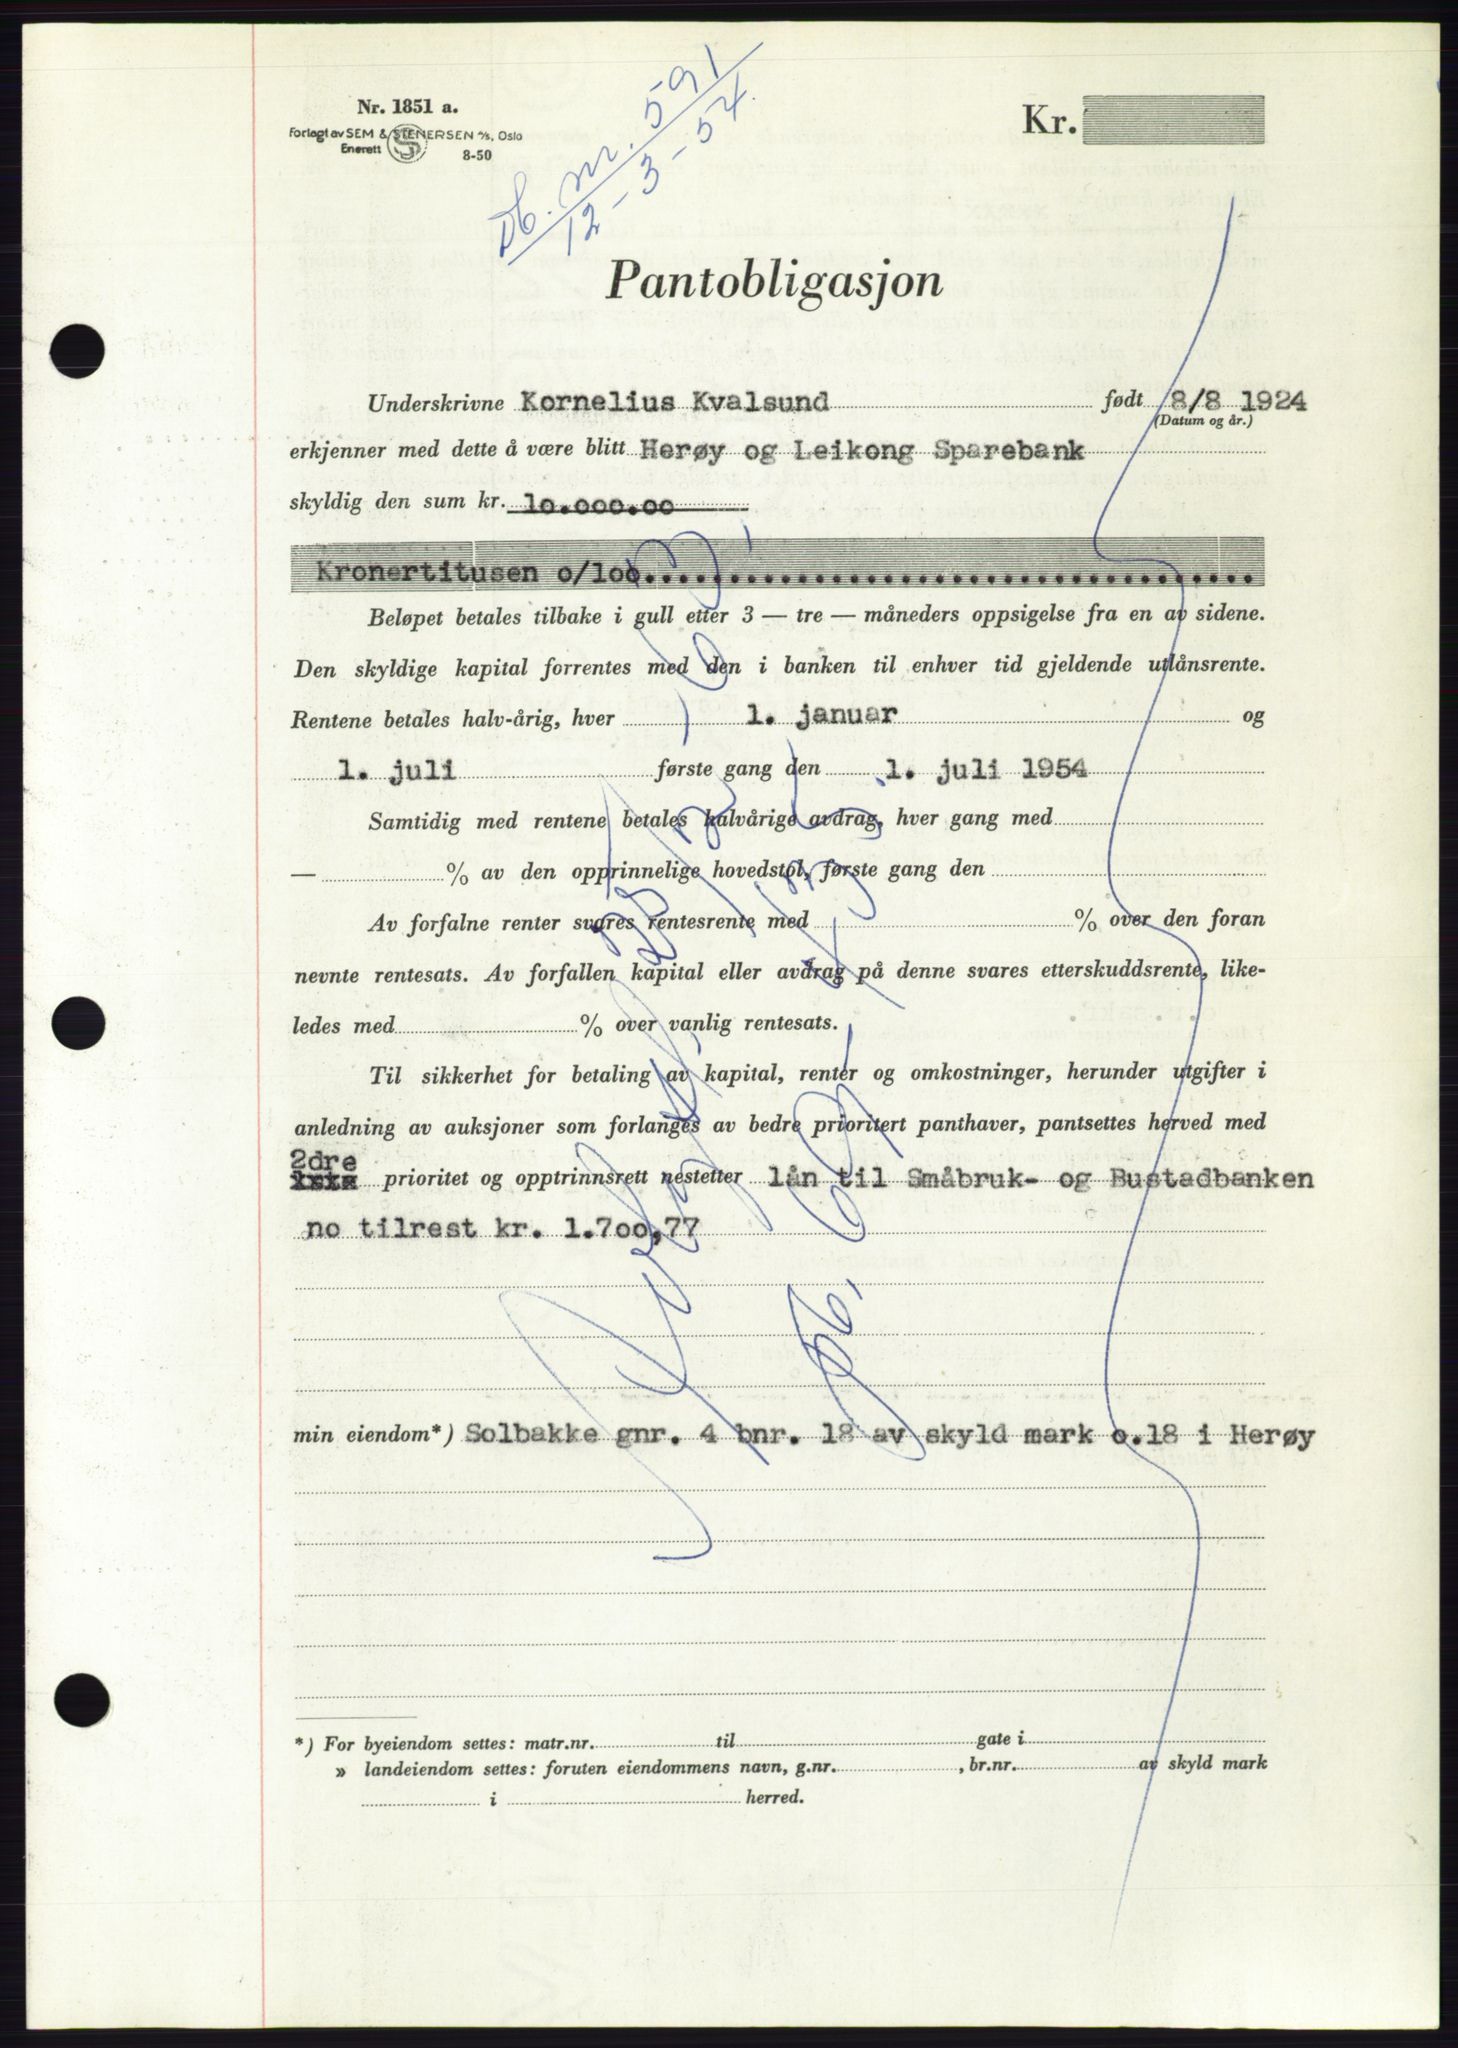 Db. nr. 591
12-3-54.
Nr. 1851 a.
Forlagt av SEM & STENERSEN A/S, Oslo
Enerett 8-50
Kr.
Pantobligasjon
Underskrivne Kornelius Kvalsund født 8/8 1924
(Datum og år.)
erkjenner med dette å være blitt Herøy og Leikong Sparebank
skyldig den sum kr. 10.000.00
Kronertitusen o/100
Beløpet betales tilbake i gull etter 3 — tre — måneders oppsigelse fra en av sidene.
Den skyldige kapital forrentes med den i banken til enhver tid gjeldende utlånsrente.
Rentene betales halv-årig, hver 1. januar og
1. juli første gang den 1. juli 1954
Samtidig med rentene betales halvårige avdrag, hver gang med
— % av den opprinnelige hovedstol, første gang den
Av forfalne renter svares rentesrente med % over den foran
nevnte rentesats. Av forfallen kapital eller avdrag på denne svares etterskuddsrente, like-
ledes med % over vanlig rentesats.
Til sikkerhet for betaling av kapital, renter og omkostninger, herunder utgifter i
anledning av auksjoner som forlanges av bedre prioritert panthaver, pantsettes herved med
2dre
prioritet og opptrinnsrett nestetter lån til Småbruk- og Bustadbanken
no tilrest kr. 1.700,77
min eiendom*) Solbakke gnr. 4 bnr. 18 av skyld mark o.18 i Herøy
*) For byeiendom settes: matr.nr. til gate i
» landeiendom settes: foruten eiendommens navn, g.nr. , br.nr. av skyld mark
i herred.